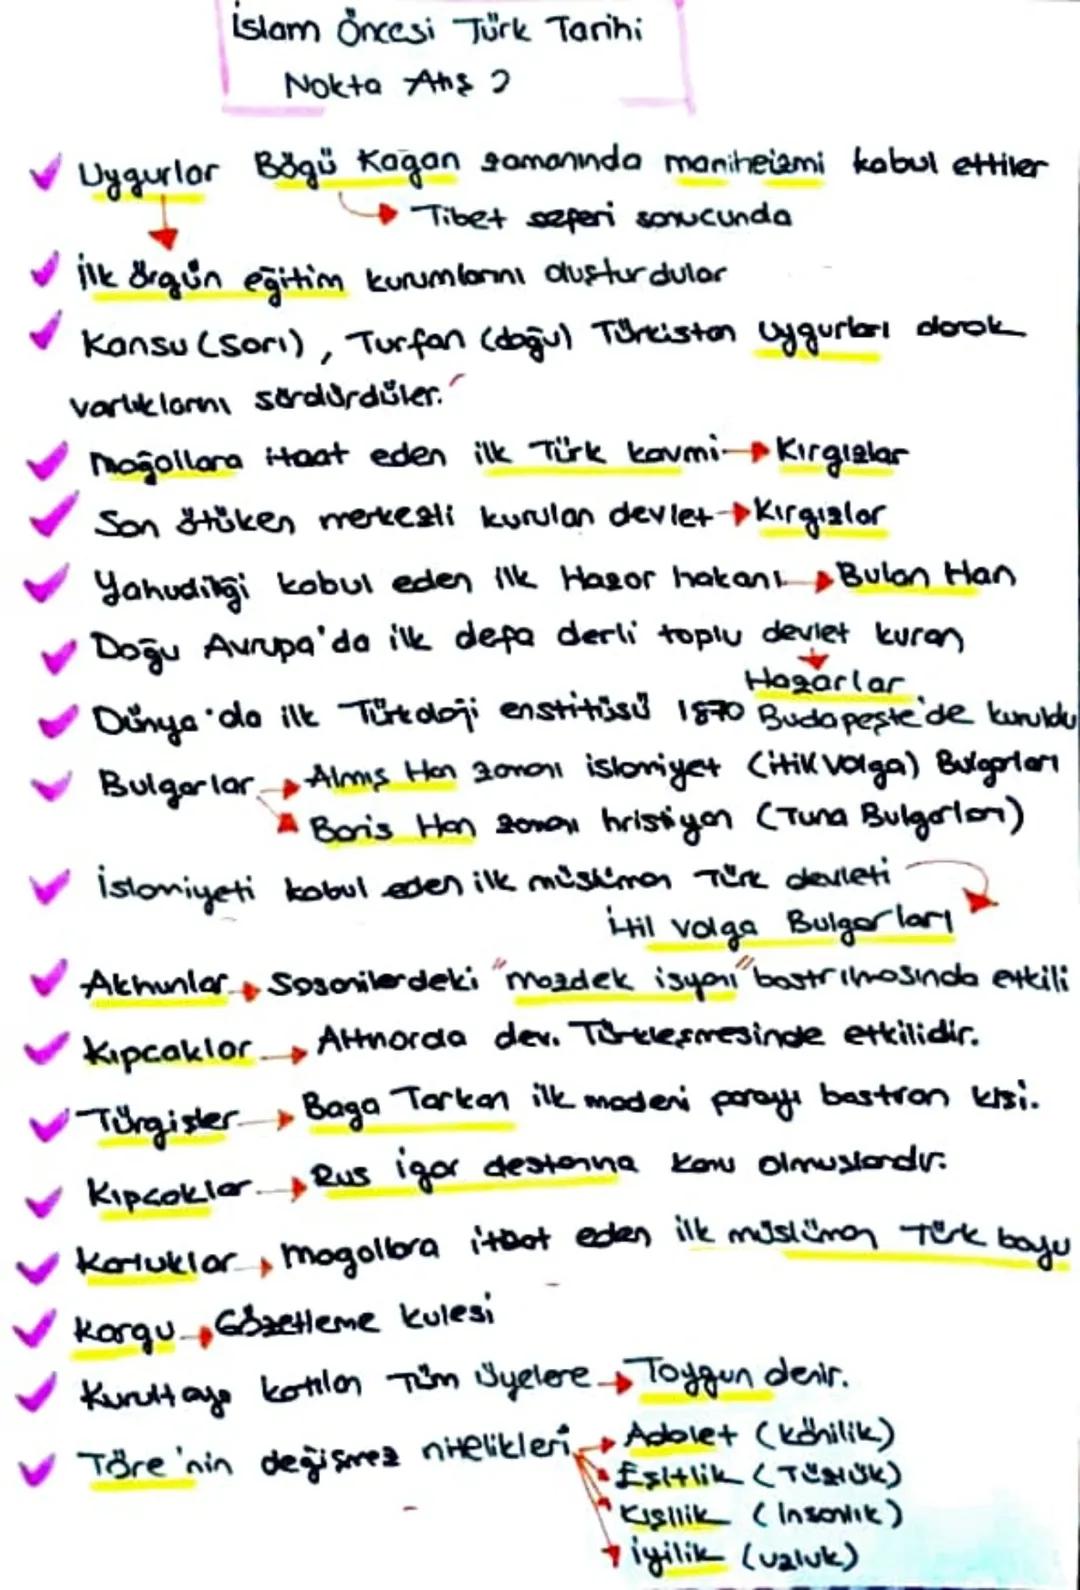 İslam Öncesi Türk Tarihi
Nokta Atış 2
Uygurlar Bögü Kağan zamanında maniheizmi kabul ettiler
Tibet seferi sonucunda
İlk örgün eğitim kurumlarını oluşturdular
Kansu (Sarı), Turfan (doğu) Türkistan Uygurları olarak
varlıklarını sürdürdüler.
Moğollara itaat eden ilk Türk kavmi → Kırgızlar
Son ötüken merkezli kurulan devlet → Kırgızlar
Yahudiliği kabul eden ilk Hazar hakanı → Bulan Han
Doğu Avrupa'da ilk defa derli toplu devlet kuran
Hazarlar
Dünya'da ilk Türkoloji enstitüsü 1870 Budapeşte'de kuruldu
Bulgarlar → Almış Han zamanı islamiyet (itik Volga) Bulgarları
Boris Han zamanı hristiyan (Tuna Bulgarları)
İslamiyeti kabul eden ilk müslüman Türk devleti
İtil Volga Bulgarları
Akhunlar → Sasanilerdeki "mazdek isyanı" bastırılmasında etkili
Kıpcaklar → Altınorda dev. Türkleşmesinde etkilidir.
Türgişler → Baga Tarkan ilk madeni parayı bastıran kişi.
Kıpcaklar → Rus igor destanına konu olmuşlardır.
Karluklar → Mogollara itaat eden ilk müslüman Türk boyu
Kargu → Gözetleme kulesi
Kurultaya katılan Tüm üyelere → Toygun denir.
Töre'nin değişmez nitelikleri → Adalet (könilik)
Eşitlik (Tüzlük)
Kişilik (İnsanlık)
İyilik (uzluk)